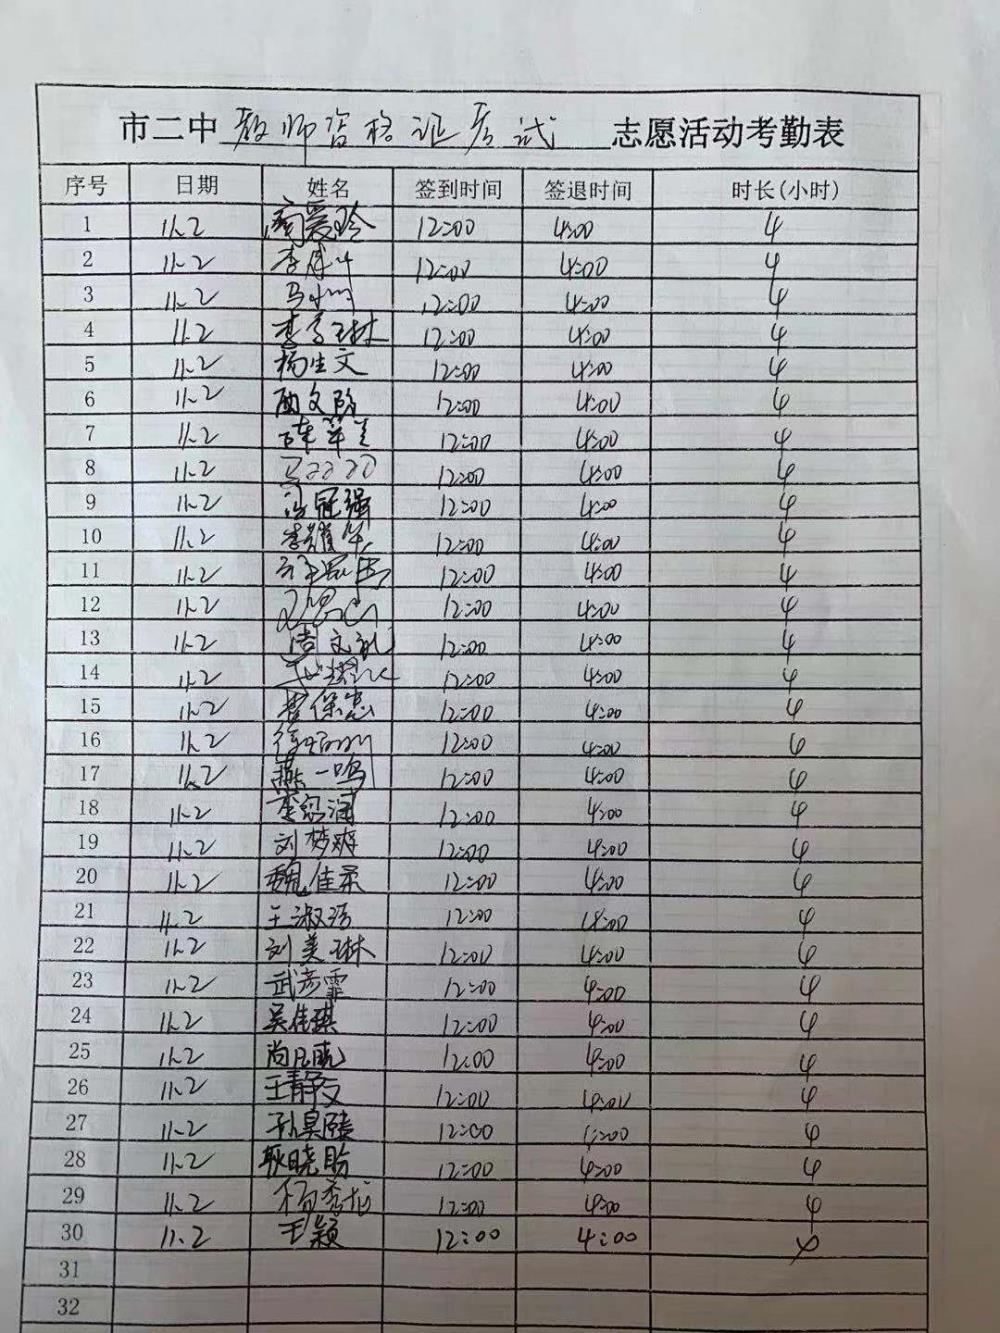 市二中 教师资格证考试 志愿活动考勤表
序号 日期 姓名 签到时间 签退时间 时长(小时)
1 11.2 爱玲 12:00 4:00 4
2 11.2 李 12:00 4:00 4
3 11.2 马 12:00 4:00 4
4 11.2 李 琳 12:00 4:00 4
5 11.2 杨生文 12:00 4:00 4
6 11.2 文 12:00 4:00 4
7 11.2 陈 12:00 4:00 4
8 11.2 12:00 4:00 4
9 11.2 冯冠强 12:00 4:00 4
10 11.2 李耀华 12:00 4:00 4
11 11.2 12:00 4:00 4
12 11.2 12:00 4:00 4
13 11.2 周文礼 12:00 4:00 4
14 11.2 12:00 4:00 4
15 11.2 曹保忠 12:00 4:00 4
16 11.2 徐 12:00 4:00 4
17 11.2 燕一鸣 12:00 4:00 4
18 11.2 李 12:00 4:00 4
19 11.2 刘梦爽 12:00 4:00 4
20 11.2 魏佳柔 12:00 4:00 4
21 11.2 王淑 12:00 4:00 4
22 11.2 刘美琳 12:00 4:00 4
23 11.2 武彦霏 12:00 4:00 4
24 11.2 吴佳琪 12:00 4:00 4
25 11.2 尚凡晓 12:00 4:00 4
26 11.2 王静文 12:00 4:00 4
27 11.2 孙昊赜 12:00 4:00 4
28 11.2 耿晓盼 12:00 4:00 4
29 11.2 杨秀龙 12:00 4:00 4
30 11.2 王颖 12:00 4:00 4
31
32